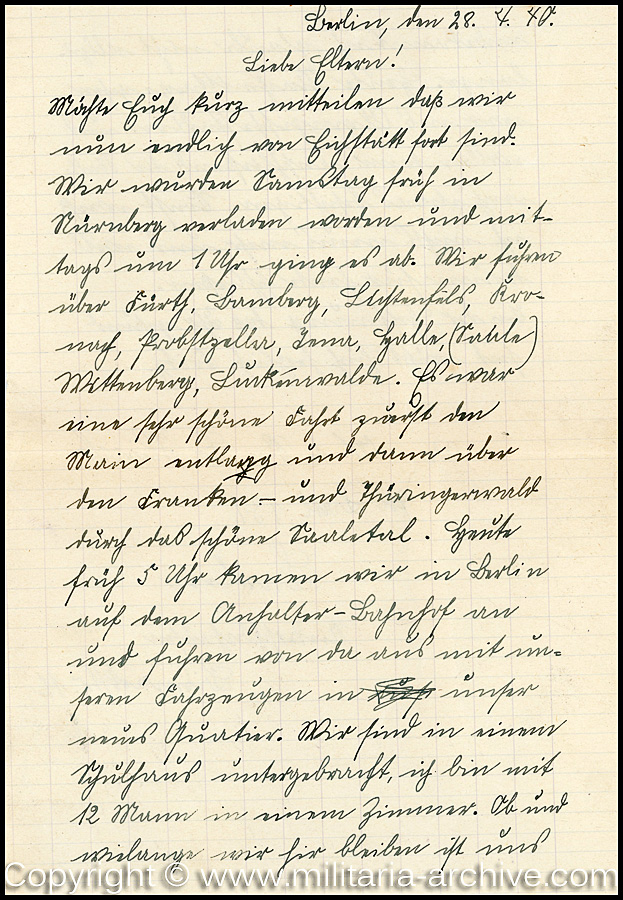 Berlin, den 28. 4. 40.
Liebe Eltern!
Möchte Euch kurz mitteilen daß wir
nun endlich von Eichstätt fort sind.
Wir wurden Samstag früh in
Nürnberg verladen worden und mit-
tags um 1 Uhr ging es ab. Wir fuhren
über Fürth, Bamberg, Lichtenfels, Kro-
nach, Probstzella, Jena, Halle, (Saale)
Wittenberg, Luckenwalde. Es war
eine sehr schöne Fahrt zuerst den
Main entlang und dann über
den Franken- und Thüringerwald
durch das schöne Saaletal. Heute
früh 5 Uhr kamen wir in Berlin
auf dem Anhalter-Bahnhof an
und fuhren von da aus mit un-
seren Fahrzeugen in unser
neues Quatier. Wir sind in einem
Schulhaus untergebracht, ich bin mit
12 Mann in einem Zimmer. Ob und
wielange wir hir bleiben ist uns
Copyright © www.militaria-archive.com